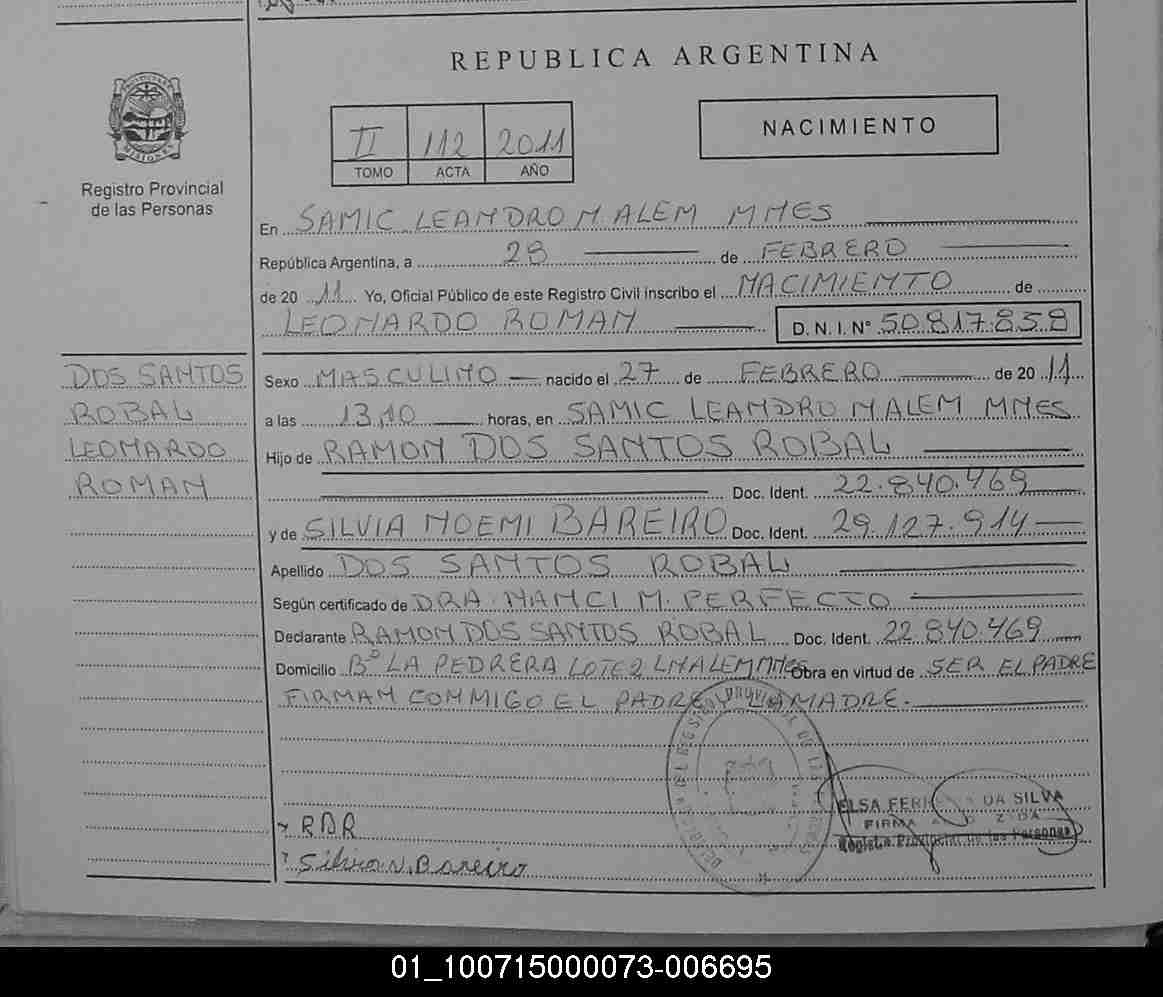 REPUBLICA ARGENTINA
PROVINCIA DE
MISIONES
Registro Provincial
de las Personas
II 112 2011
TOMO ACTA AÑO
NACIMIENTO
En SAMIC LEANDRO N. ALEM MNES
República Argentina, a 28 de FEBRERO
de 20 11 Yo, Oficial Público de este Registro Civil inscribo el NACIMIENTO de
LEONARDO ROMAN D. N. I. N° 50.817.858
DOS SANTOS
ROBAL
LEONARDO
ROMAN
Sexo MASCULINO nacido el 27 de FEBRERO de 20 11
a las 13,10 horas, en SAMIC LEANDRO N. ALEM MNES
Hijo de RAMON DOS SANTOS ROBAL
Doc. Ident. 22.840.469
y de SILVIA NOEMI BAREIRO Doc. Ident. 29.127.914
Apellido DOS SANTOS ROBAL
Según certificado de DRA. NANCI M. PERFECTO
Declarante RAMON DOS SANTOS ROBAL Doc. Ident. 22.840.469
Domicilio B° LA PEDRERA LOTE 2 LNALEM MNES Obra en virtud de SER EL PADRE
FIRMAN CONMIGO EL PADRE Y LA MADRE.
ELSA DA SILVA
FIRMA
Registro Provincial de las Personas
RDR
Silvia N. Bareiro
01_100715000073-006695